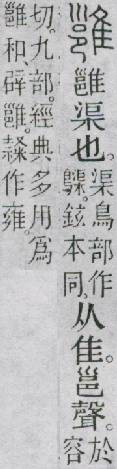 雝 雝渠也。渠鳥部作𪆫。鉉本同。从隹。邕聲。於容
切。九部。經典多用爲
雝和、辟雝。隷作雍。